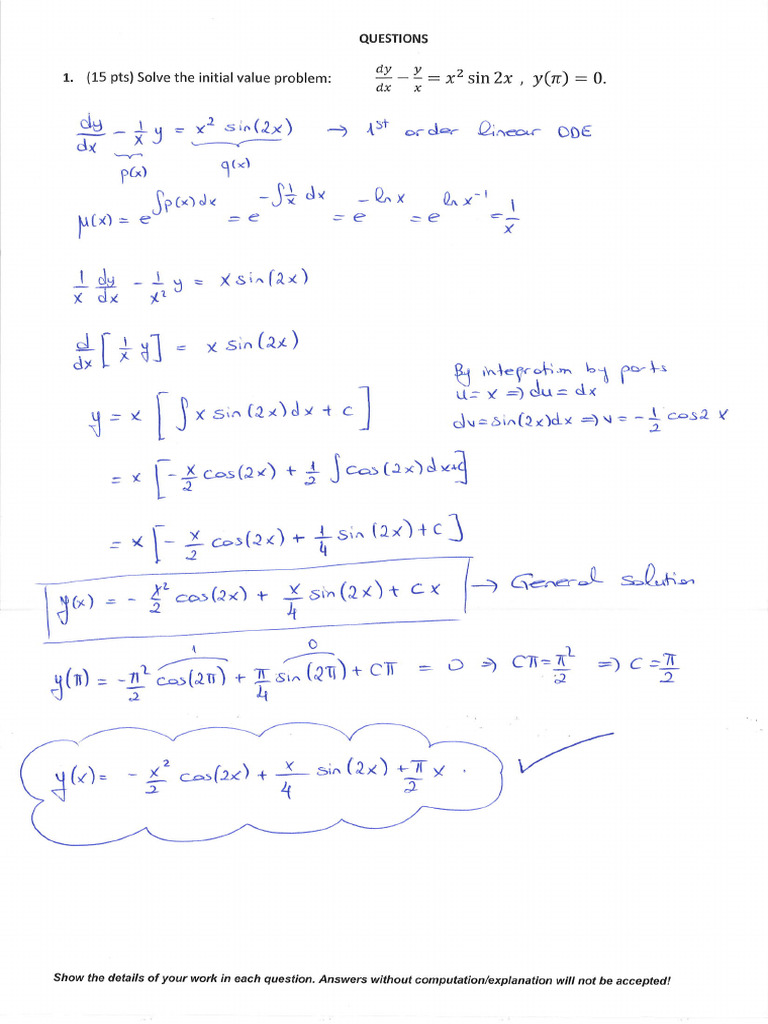 QUESTIONS
1. (15 pts) Solve the initial value problem: dy/dx − y/x = x² sin 2x , y(π) = 0.
dy/dx - 1/x y = x² sin(2x) → 1st order linear ODE
p(x) q(x)
μ(x) = e^∫p(x)dx = e^-∫1/x dx = e^-ln x = e^ln x⁻¹ = 1/x
1/x dy/dx - 1/x² y = x sin(2x)
d/dx [1/x y] = x sin(2x)
By integration by parts
u = x ⇒ du = dx
y = x [∫x sin(2x)dx + c]
dv = sin(2x)dx ⇒ v = -1/2 cos2x
= x [-x/2 cos(2x) + 1/2 ∫cos(2x)dx+c]
= x [-x/2 cos(2x) + 1/4 sin(2x) + c]
y(x) = - x²/2 cos(2x) + x/4 sin(2x) + cx → General solution
1 0
y(π) = -π²/2 cos(2π) + π/4 sin(2π) + Cπ = 0 ⇒ Cπ = π²/2 ⇒ C = π/2
y(x) = - x²/2 cos(2x) + x/4 sin(2x) + π/2 x.
Show the details of your work in each question. Answers without computation/explanation will not be accepted!